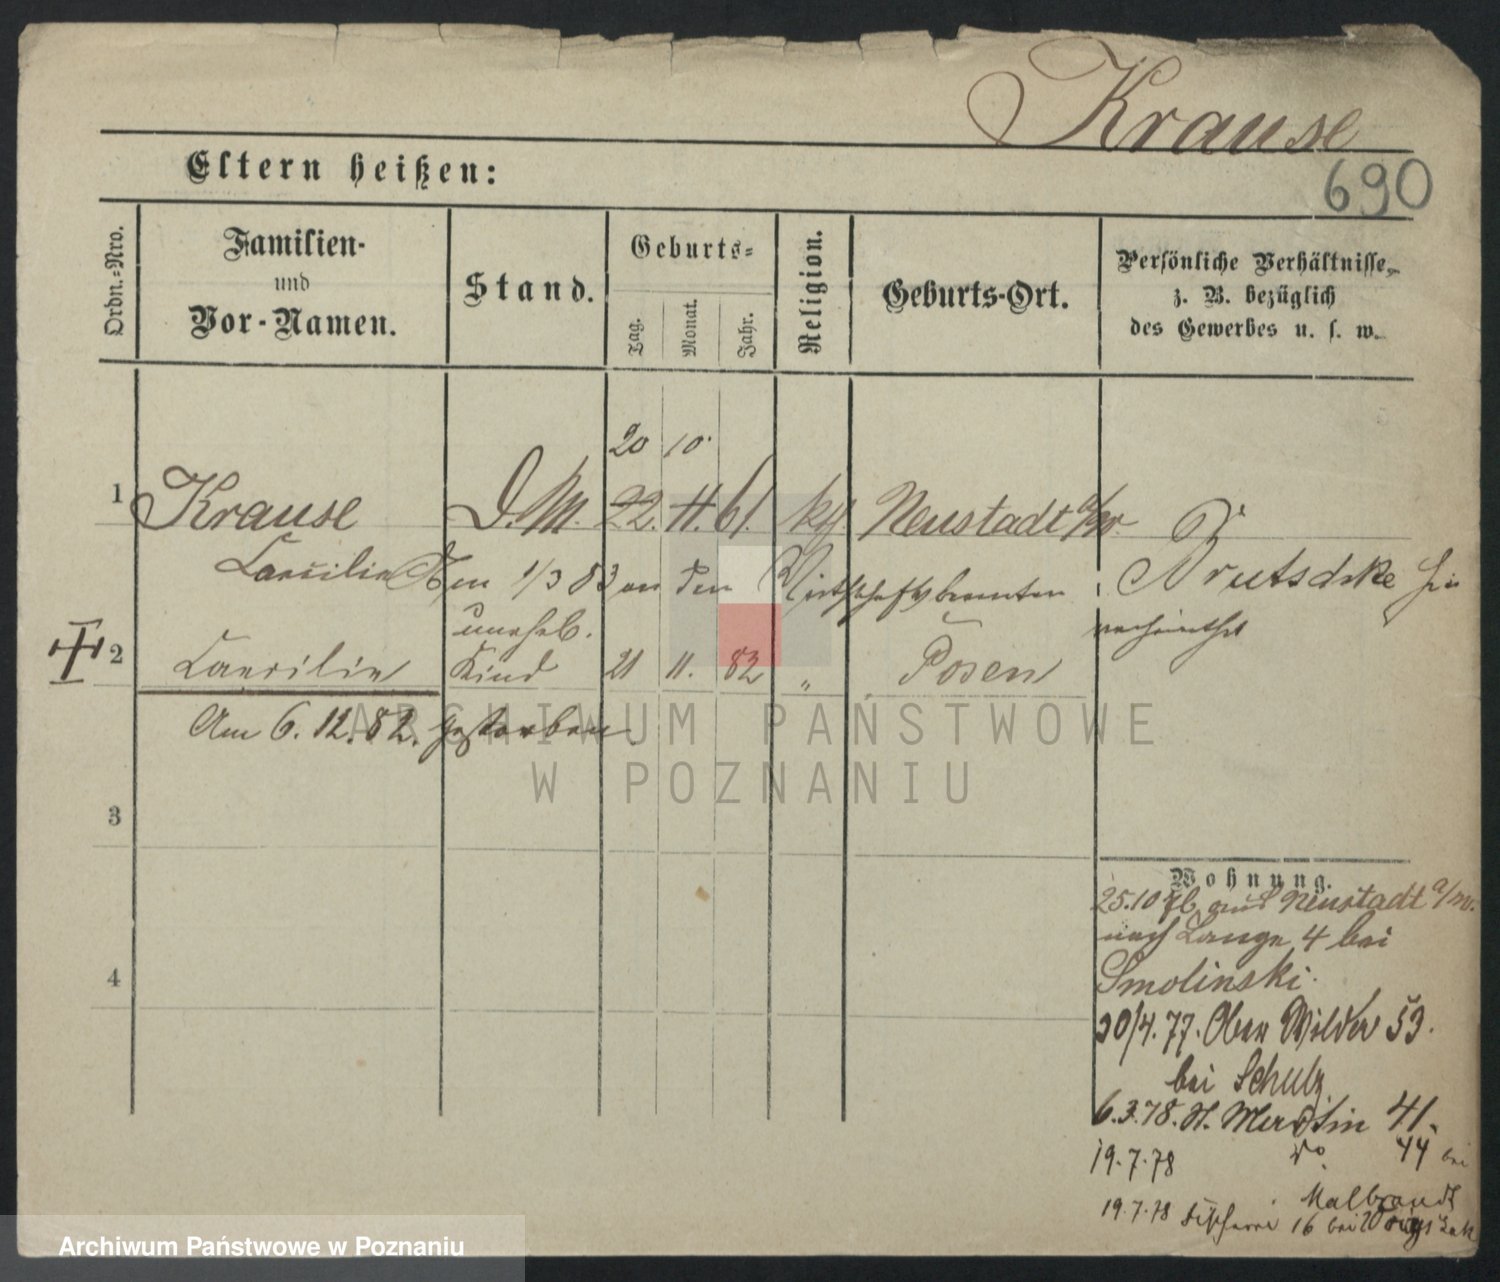 Krause
690
Eltern heißen:
Ordn.-Nro.
Familien-
und
Vor-Namen.
Stand.
Geburts-
Tag.
Monat.
Jahr.
Religion.
Geburts-Ort.
Persönliche Verhältnisse,
z. B. bezüglich
des Gewerbes u. s. w.
20 10.
1 Krause D. M. 22. 11. 61. kth. Neustadt a/W.
Caecilie Am 1/3 83 an den Wirthschaftsbeamten Brutschke hier
verheirathet
unehel.
2 Caecilie Kind 21 11. 82 " Posen
Am 6. 12. 82. gestorben.
3
4
Wohnung.
25.10 76 aus Neustadt a/W.
nach Lange 4 bei
Smolinski.
30/4. 77. Ober Wilda 53.
bei Schulz
6.3.78. St. Martin 41.
19.7.78 do. 44 bei
Malbrandt
19.7.78 Fischerei 16 bei
ARCHIWUM PAŃSTWOWE
W POZNANIU
Archiwum Państwowe w Poznaniu